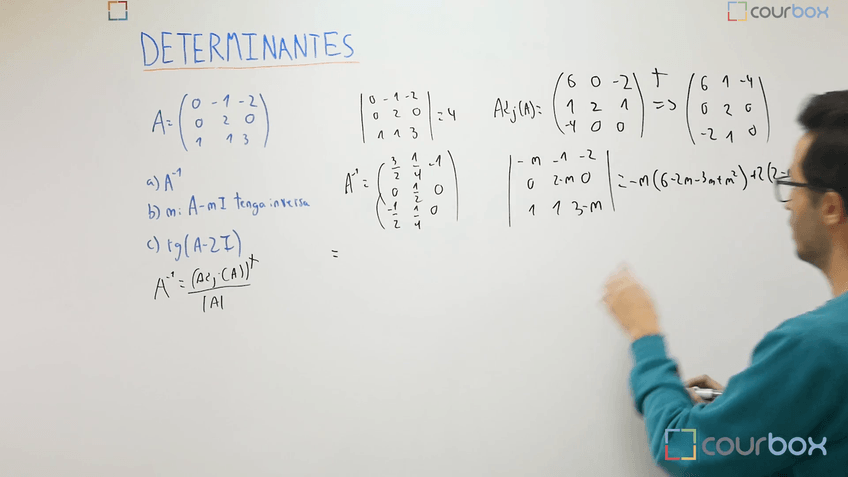 courbox
courbox
DETERMINANTES
A= ( 0 -1 -2
0 2 0
1 1 3 )
a) A⁻¹
b) m: A-mI tenga inversa
c) rg(A-2I)
A⁻¹= (Adj(A))ᵗ
|A|
| 0 -1 -2
0 2 0
1 1 3 | =4
A⁻¹= ( 3/2 1/4 -1
0 1/2 0
-1/2 1/4 0 )
=
Adj(A)= ( 6 0 -2
1 2 1
-4 0 0 )ᵗ => ( 6 1 -4
0 2 0
-2 1 0 )
| -m -1 -2
0 2-m 0
1 1 3-m | =-m(6-2m-3m+m²)+2(2-
courbox